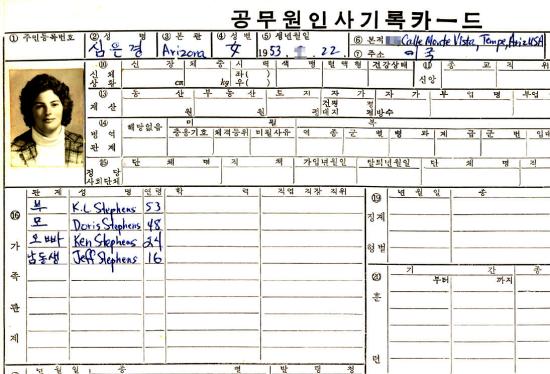 공무원인사기록카드
① 주민등록번호 ② 성 명 ③ 본 관 ④ 성 변 ⑤ 생년월일 ⑥ 본적 Calle Monte Vista, Tempe, Ariz. USA
심은경 Arizona 女 1953. 22. ⑦ 주소
⑩ 신 장 체 중 시 력 색 맹 혈 액 형 건강상태 ⑪ 종 교
신체 cm kg 좌( ) 우( ) 신앙
⑬ 동 산 부 동 산 토 지 자 가 부 업 명
재 산 원 원 건평 평
⑭ 해당없음 미 필 복
병 역 충응기호 체격등위 미필사유 역 종 군 별 병 과 계 급 군 번
관 계
⑮ 단 체 명 직 책 가입년월일 탈퇴년월일 단 체 명
정 당
사회단체
⑯ 관 계 성 명 연령 학 력 직업 직장 직위 ⑲ 년 월 일 종
부 K.L. Stephens 53 징계
모 Doris Stephens 48
오빠 Ken Stephens 24 형벌
남동생 Jeff Stephens 16
가 족 관 계
⑳ 기 간 종
부터 까지
훈 련
년 월 일 종 명